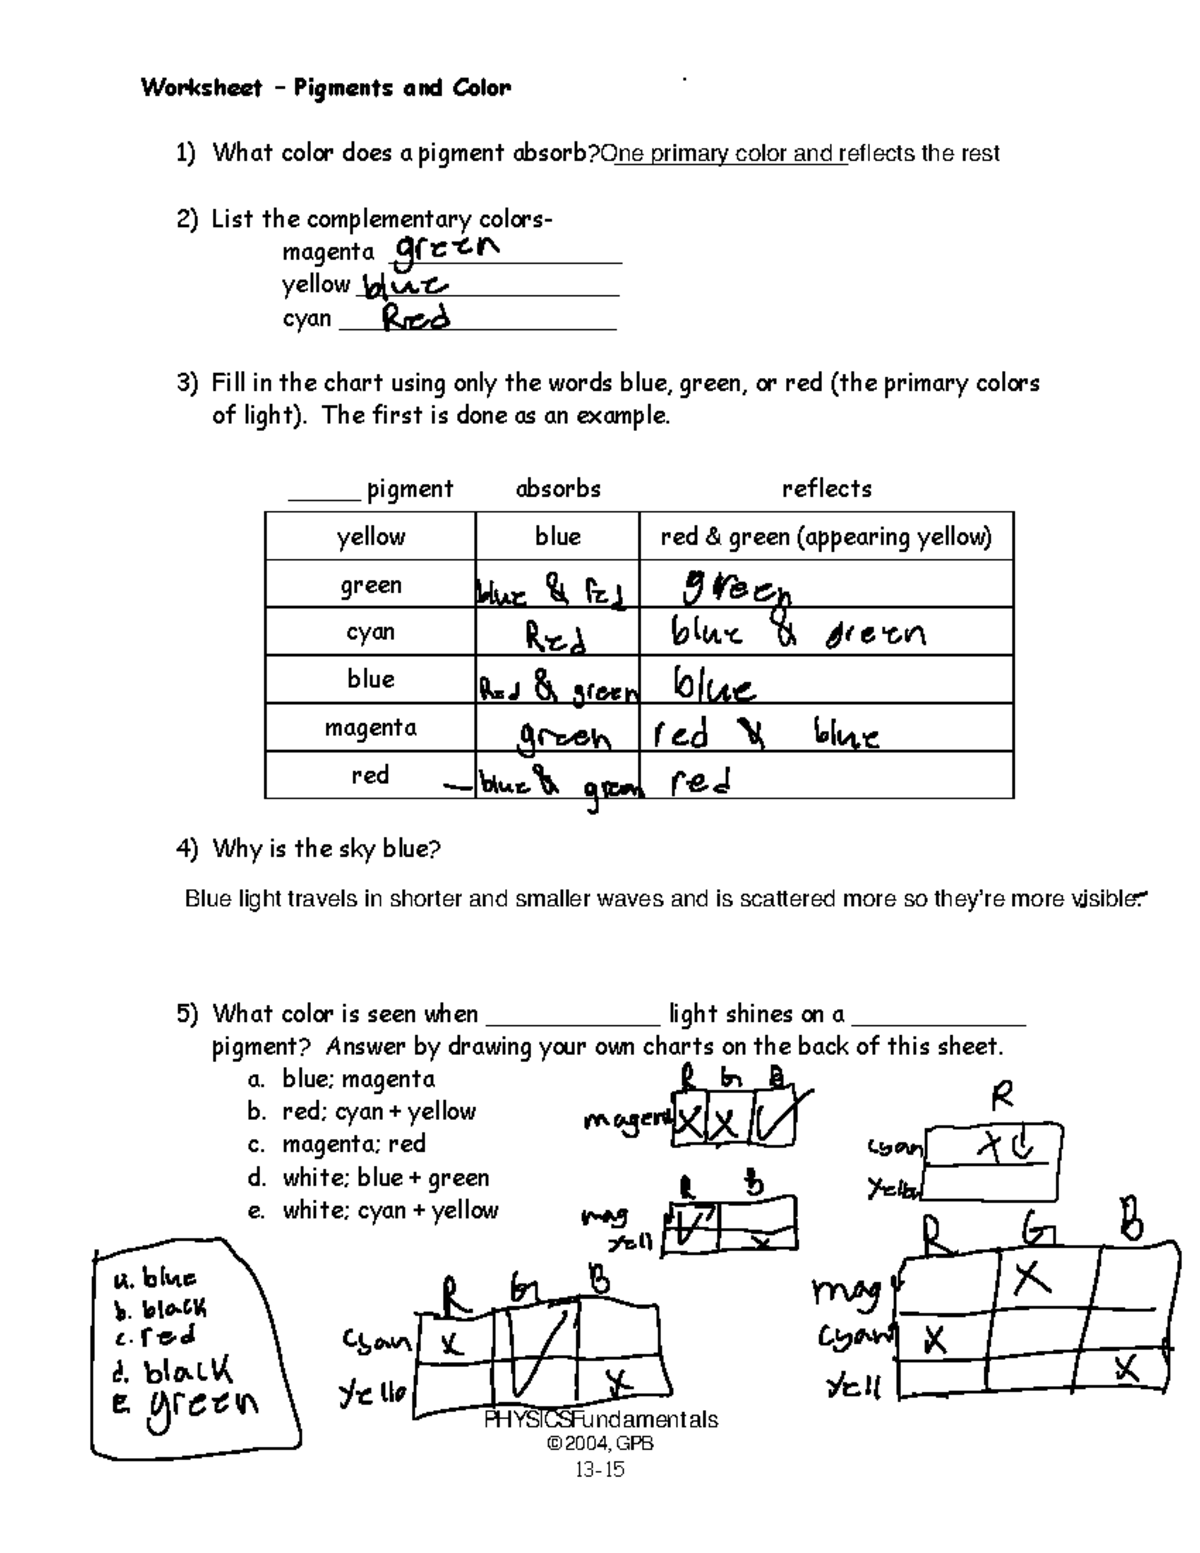 Worksheet – Pigments and Color
1) What color does a pigment absorb?One primary color and reflects the rest
2) List the complementary colors-
magenta green
yellow blue
cyan Red
3) Fill in the chart using only the words blue, green, or red (the primary colors
of light). The first is done as an example.
______ pigment absorbs reflects
yellow blue red & green (appearing yellow)
green blue & red green
cyan Red blue & green
blue Red & green blue
magenta green red & blue
red – blue & green red
4) Why is the sky blue?
Blue light travels in shorter and smaller waves and is scattered more so they're more visible.
5) What color is seen when ______________ light shines on a ______________
pigment? Answer by drawing your own charts on the back of this sheet.
a. blue; magenta
b. red; cyan + yellow
c. magenta; red
d. white; blue + green
e. white; cyan + yellow
R G B
magent X X ✓
R
cyan X
Yellow
R B
mag ✓
Yell X
R G B
mag X
cyan X
Yell X
R G B
cyan X ✓
Yello X
a. blue
b. black
c. red
d. black
E. green
PHYSICSFundamentals
©2004, GPB
13-15